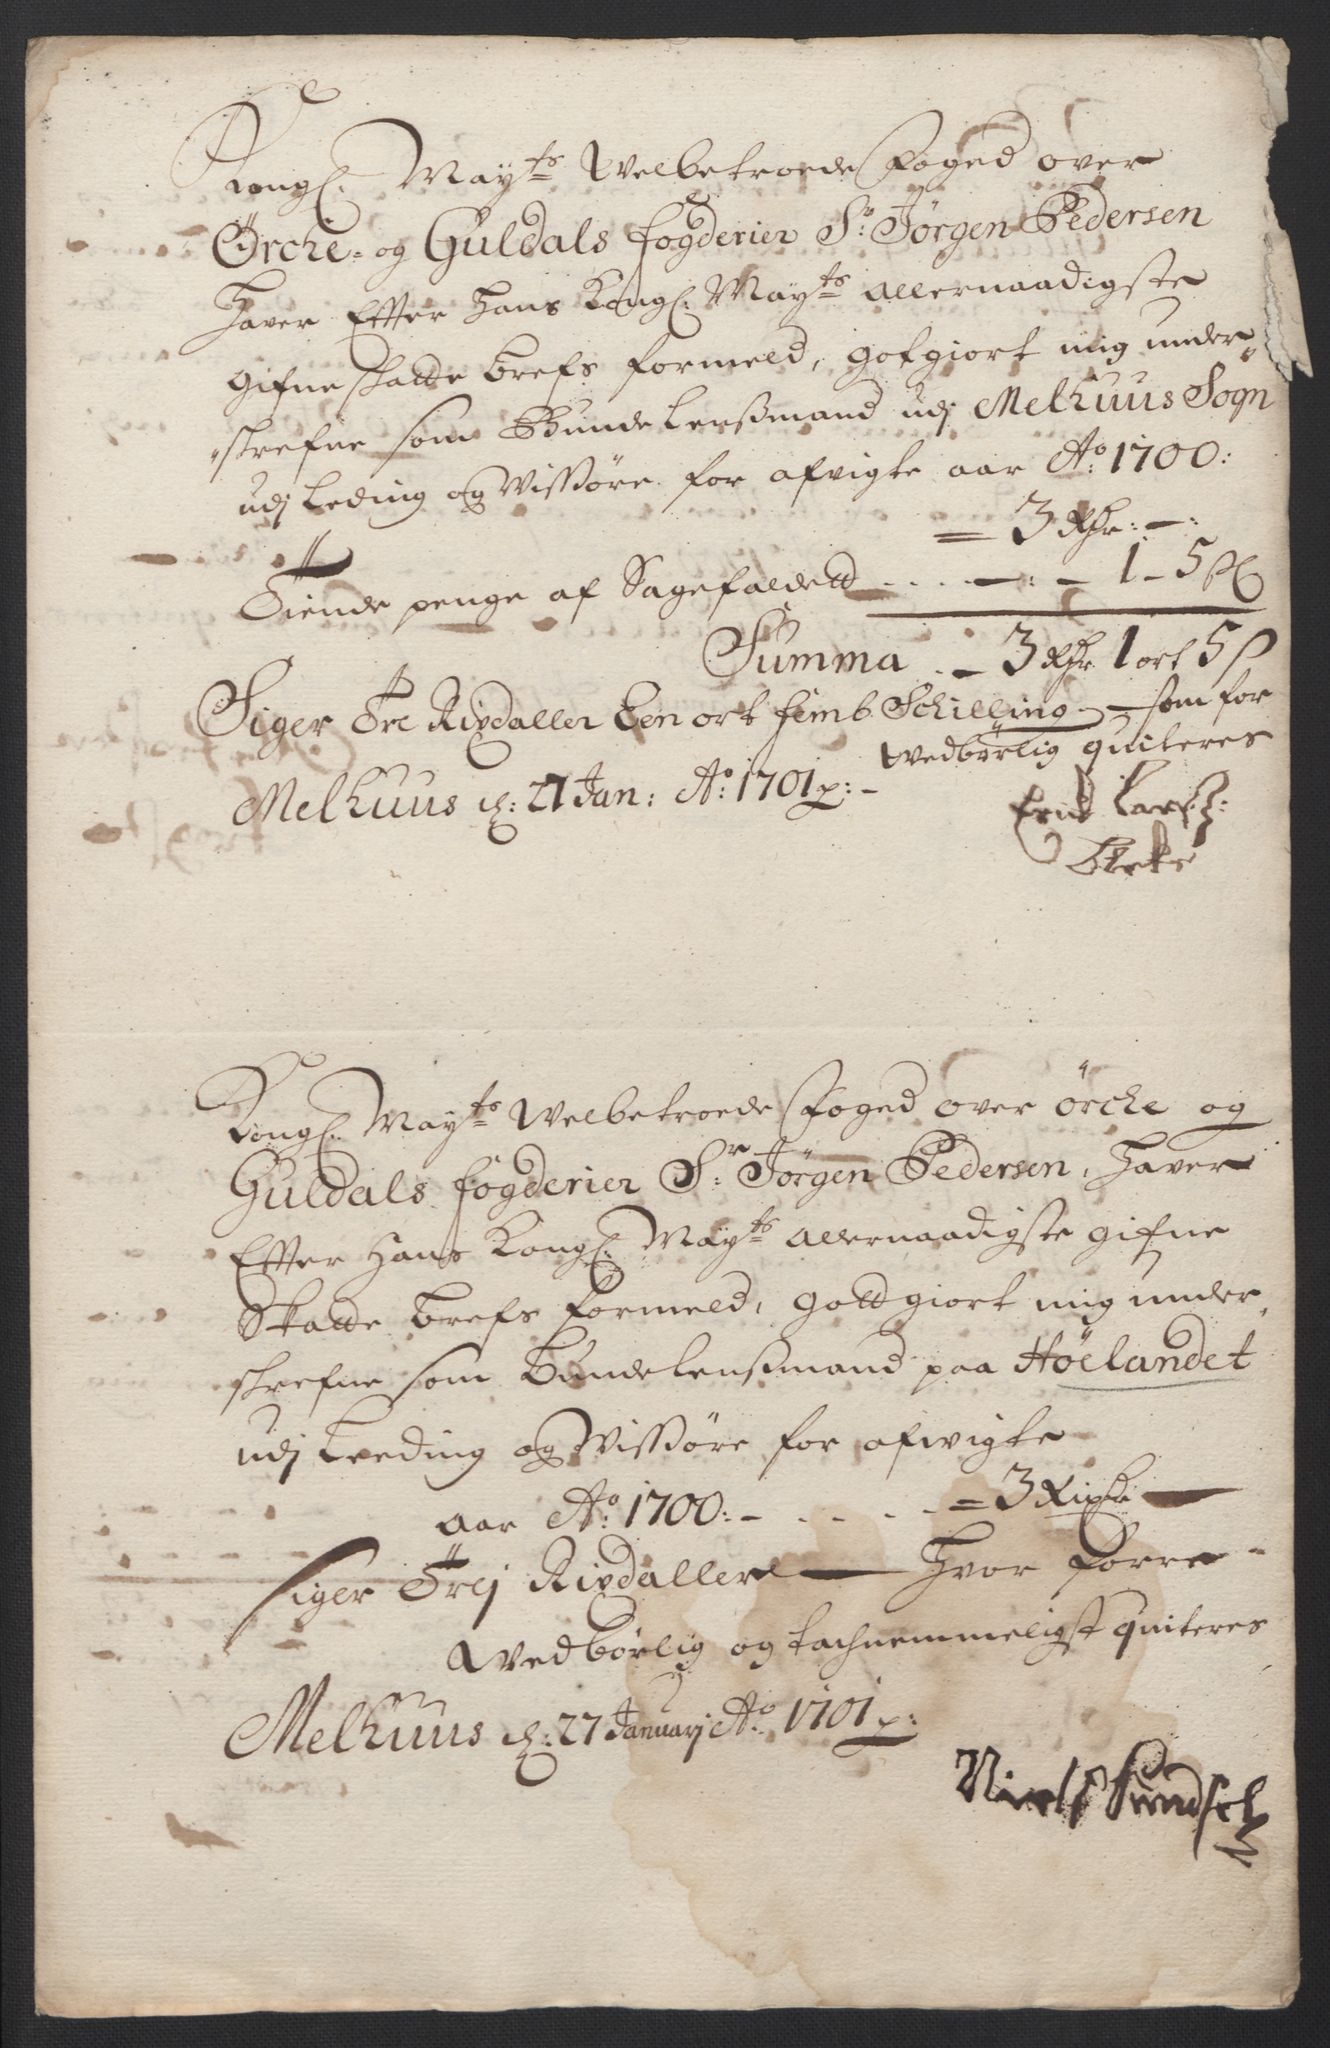 Kongl. Mayts Welbetroede Foged over
Örche- og Guldals fogderier Sr. Jörgen Pedersen
Hafver Efter Hans Kongl. Mayts allernaadigste
gifne skatte brefs formeld, gotgiort mig under¬
skrefne som Bunde Lenßmand udj Melhuus Sogn
udj Leding og Wißöre for afvigte aar Ao. 1700:
= 3 Rdr: -:
Tiende penge af Sagefaldett . . . - : - 1 - 5 ß
Summa . . - 3 Rdr 1 ort 5 ß
Siger Tre Rixdaller Een ort femb Schilling - som for
wedbörlig quiteres
Melhuus d: 27 Jan: Ao. 1701 p: -
Erik Larsz:
Bleke
Kongl. Mayts Welbetroede Foged over Örche og
Guldals fogderier Sr. Jörgen Pedersen, Hafver
Efter Hans Kongl. Mayts allernaadigste gifne
Skatte brefs formeld, gottgiort mig under¬
skrefne som bunde lenßmand paa Höelandet
udj Leeding og Wißöre for afwigte
aar Ao. 1700: - . . . . = 3 Rixdr
siger Trej Rixdallere — Hvor forre -
Wedbörlig og tachnemmeligst quiteres
Melhuus d: 27 Januarj Ao. 1701 p:
Niels